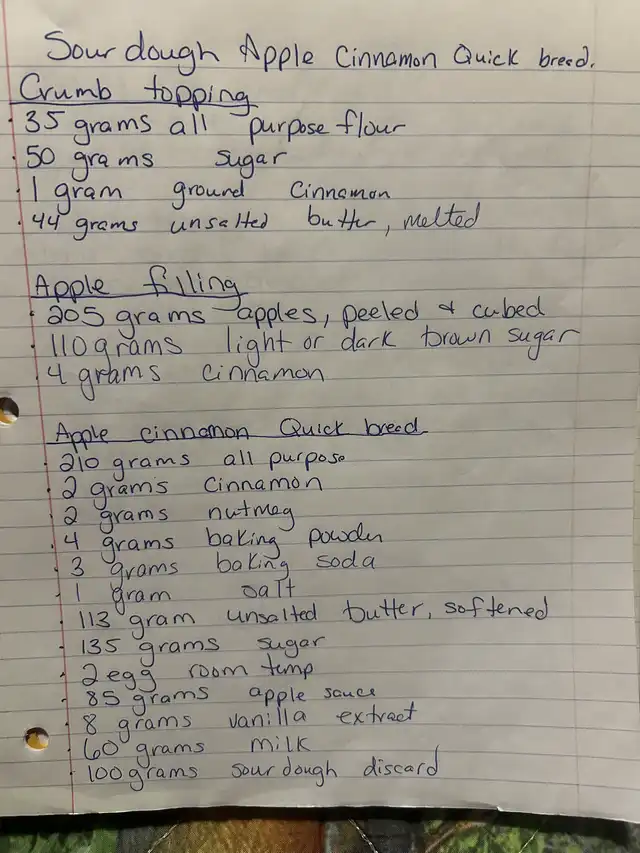 Sourdough Apple Cinnamon Quick breed.
Crumb topping
· 35 grams all purpose flour
· 50 grams sugar
· 1 gram ground cinnamon
· 44 grams unsalted butter, melted
Apple filling
· 205 grams apples, peeled & cubed
· 110 grams light or dark brown sugar
· 4 grams cinnamon
Apple cinnamon Quick breed
· 210 grams all purpose
· 2 grams cinnamon
· 2 grams nutmeg
· 4 grams baking powder
· 3 grams baking soda
· 1 gram salt
· 113 gram unsalted butter, softened
· 135 grams sugar
· 2 egg room temp
· 85 grams apple sauce
· 8 grams vanilla extract
· 60 grams milk
· 100 grams sourdough discard